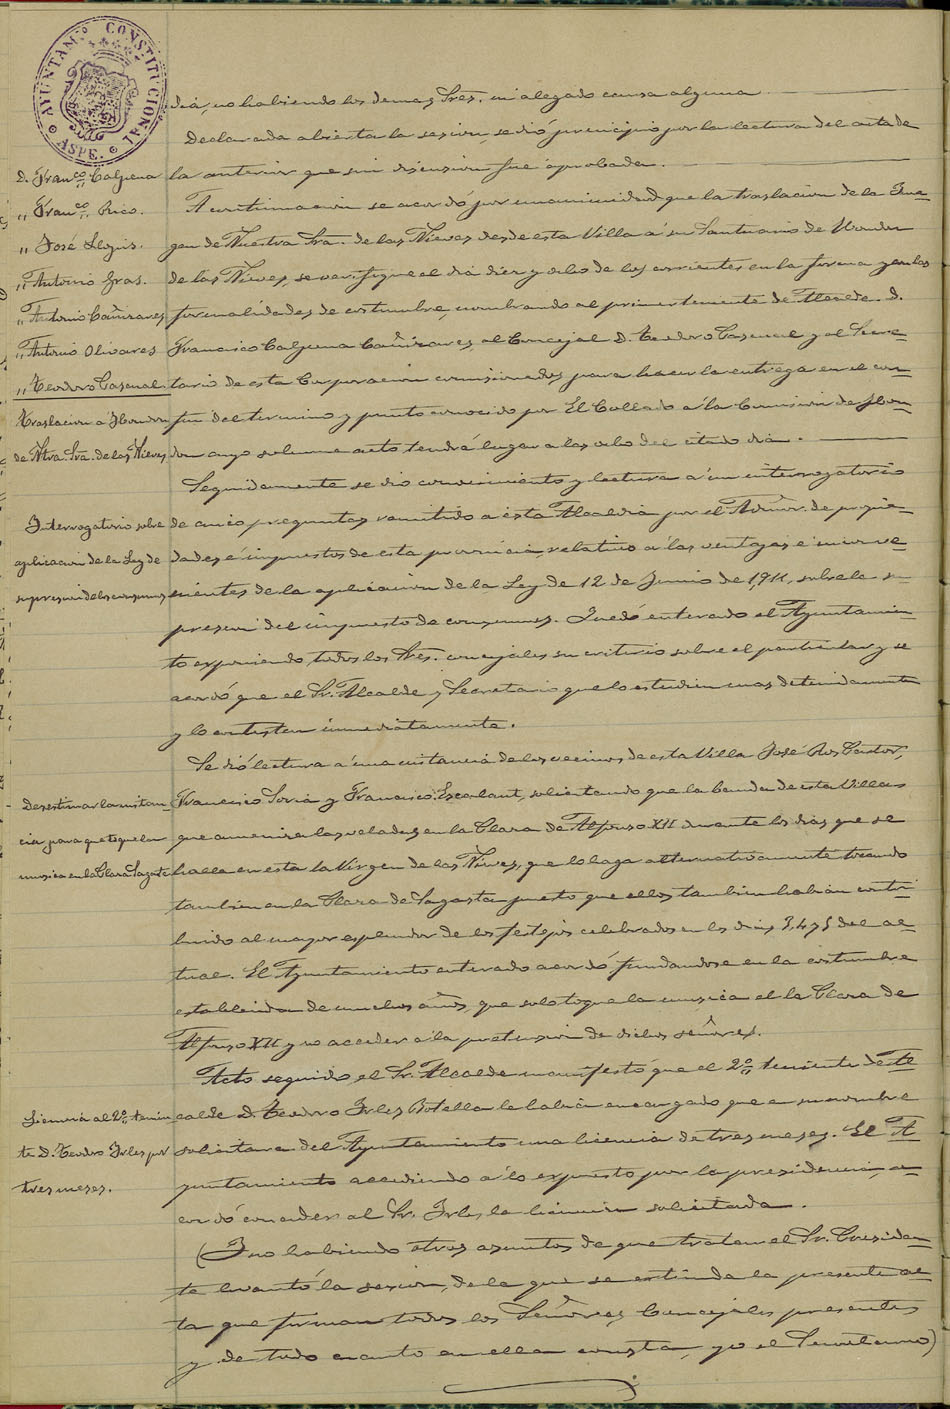 AYUNTAM.º CONSTITUCIONAL
ASPE.
D. Fran.co Calpena
" Fran.co Rico.
" José Llopis.
" Antonio Gras.
" Antonio Cañizares
" Antonio Olivares
" Teodoro Pascual
Traslacion á Hondon
de Ntra. Sra. de las Nieves
Interrogatorio sobre
aplicacion de la Ley de
supresion de los consumos
Desestimar la instan-
cia para que toque la
musica en la Plaza Sagasta
Licencia al 2º tenien-
te D. Teodoro Irles por
tres meses.
dia, no habiendo los demas Sres. ni alegado causa alguna
Declarada abierta la sesion, se dió principio por la lectura del acta de
la anterior que sin discusion fue aprobada.
A continuacion se acordó por unanimidad que la traslacion de la Ima-
gen de Nuestra Sra. de las Nieves desde esta Villa á su Santuario de Hondon
de las Nieves, se verifique el dia diez y ocho de los corrientes en la forma y con las
formalidades de costumbre, nombrando al primer teniente de Alcalde D.
Francisco Calpena Cañizares, al Concejal D. Teodoro Pascual y al Secre-
tario de esta Corporacion comisionados para hacer la entrega en el con-
fin del termino y punto conocido por El Collado á la Comision de Hon-
don cuyo solemne acto tendrá lugar a las ocho del citado dia.
Seguidamente se dio conocimiento y lectura á un interrogatorio
de cinco preguntas remitido a esta Alcaldia por el Admor. de propie-
dades é impuestos de esta provincia, relativo á las ventajas é inconve-
nientes de la aplicacion de la Ley de 12 de Junio de 1911, sobre la su-
presion del impuesto de consumos. Quedó enterado el Ayuntamien-
to exponiendo todos los Sres. concejales su criterio sobre el particular y se
acordó que el Sr. Alcalde y Secretario que lo estudien mas detenidamente
y lo contesten inmediatamente.
Se dió lectura á una instancia de los vecinos de esta Villa José Ros Pastor,
Francisco Soria y Francisco Escalant, solicitando que la banda de esta Villa
que ameniza las veladas en la Plaza de Alfonso XII durante los dias que se
halla en esta la Virgen de las Nieves, que lo haga alternativamente tocando
tambien en la Plaza de Sagasta puesto que ellos tambien habian contri-
buido al mayor esplendor de los festejos celebrados en los dias 3, 4 y 5 del ac-
tual. El Ayuntamiento enterado acordó, fundandose en la costumbre
establecida de muchos años, que solo toque la musica el la Plaza de
Alfonso XII y no acceder á la pretension de dichos señores.
Acto seguido, el Sr. Alcalde manifestó que el 2º teniente de Al-
calde D. Teodoro Irles Botella le habia encargado que en su nombre
solicitara del Ayuntamiento una licencia de tres meses. El A-
yuntamiento accediendo á lo expuesto por la presidencia, a-
cordó conceder al Sr. Irles la licencia solicitada.
(I no habiendo otros asuntos de que tratar el Sr. Presiden-
te levantó la sesion, de la que se extiende la presente ac-
ta que firman todos los Señores Concejales presentes
y de todo cuanto en ella consta, yo el Secretario)